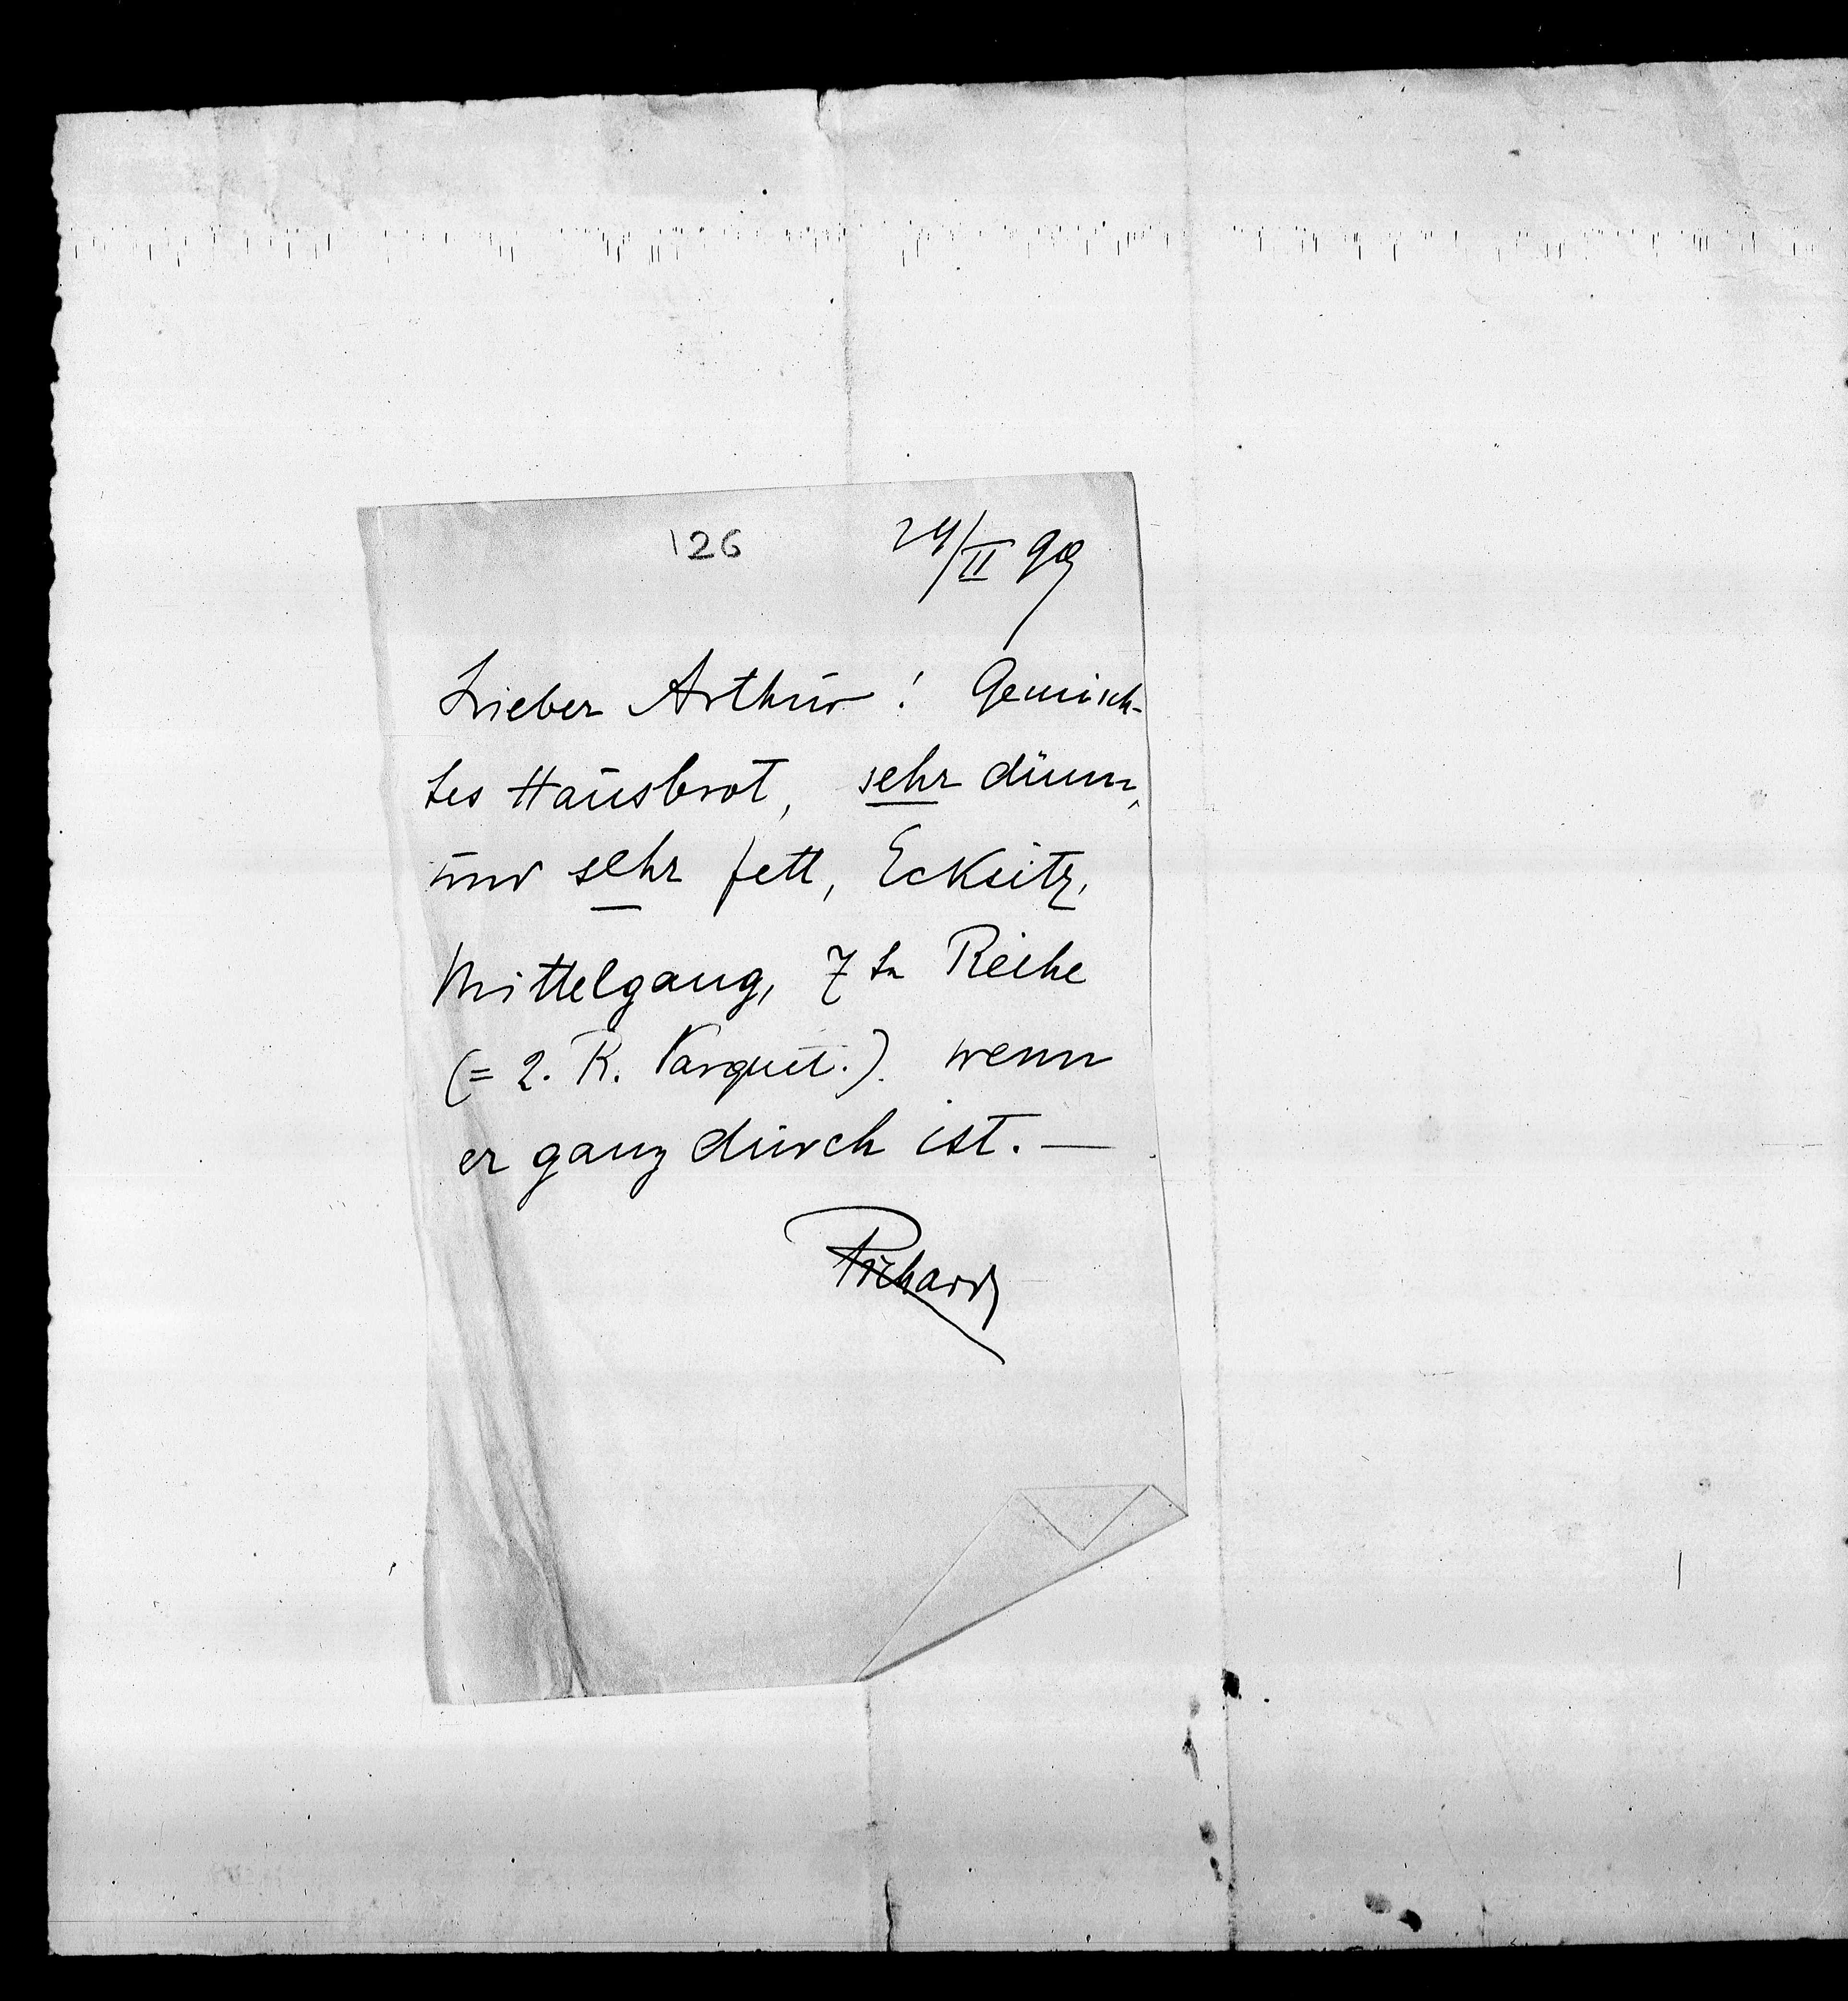 126 24/II 99
Lieber Arthur! Gemisch-
tes Hausbrot, sehr dünn,
nur sehr fett, Ecksitz,
Mittelgang, 7te Reihe
(= 2. R. Parquet.). wenn
er ganz durch ist. —
Richard